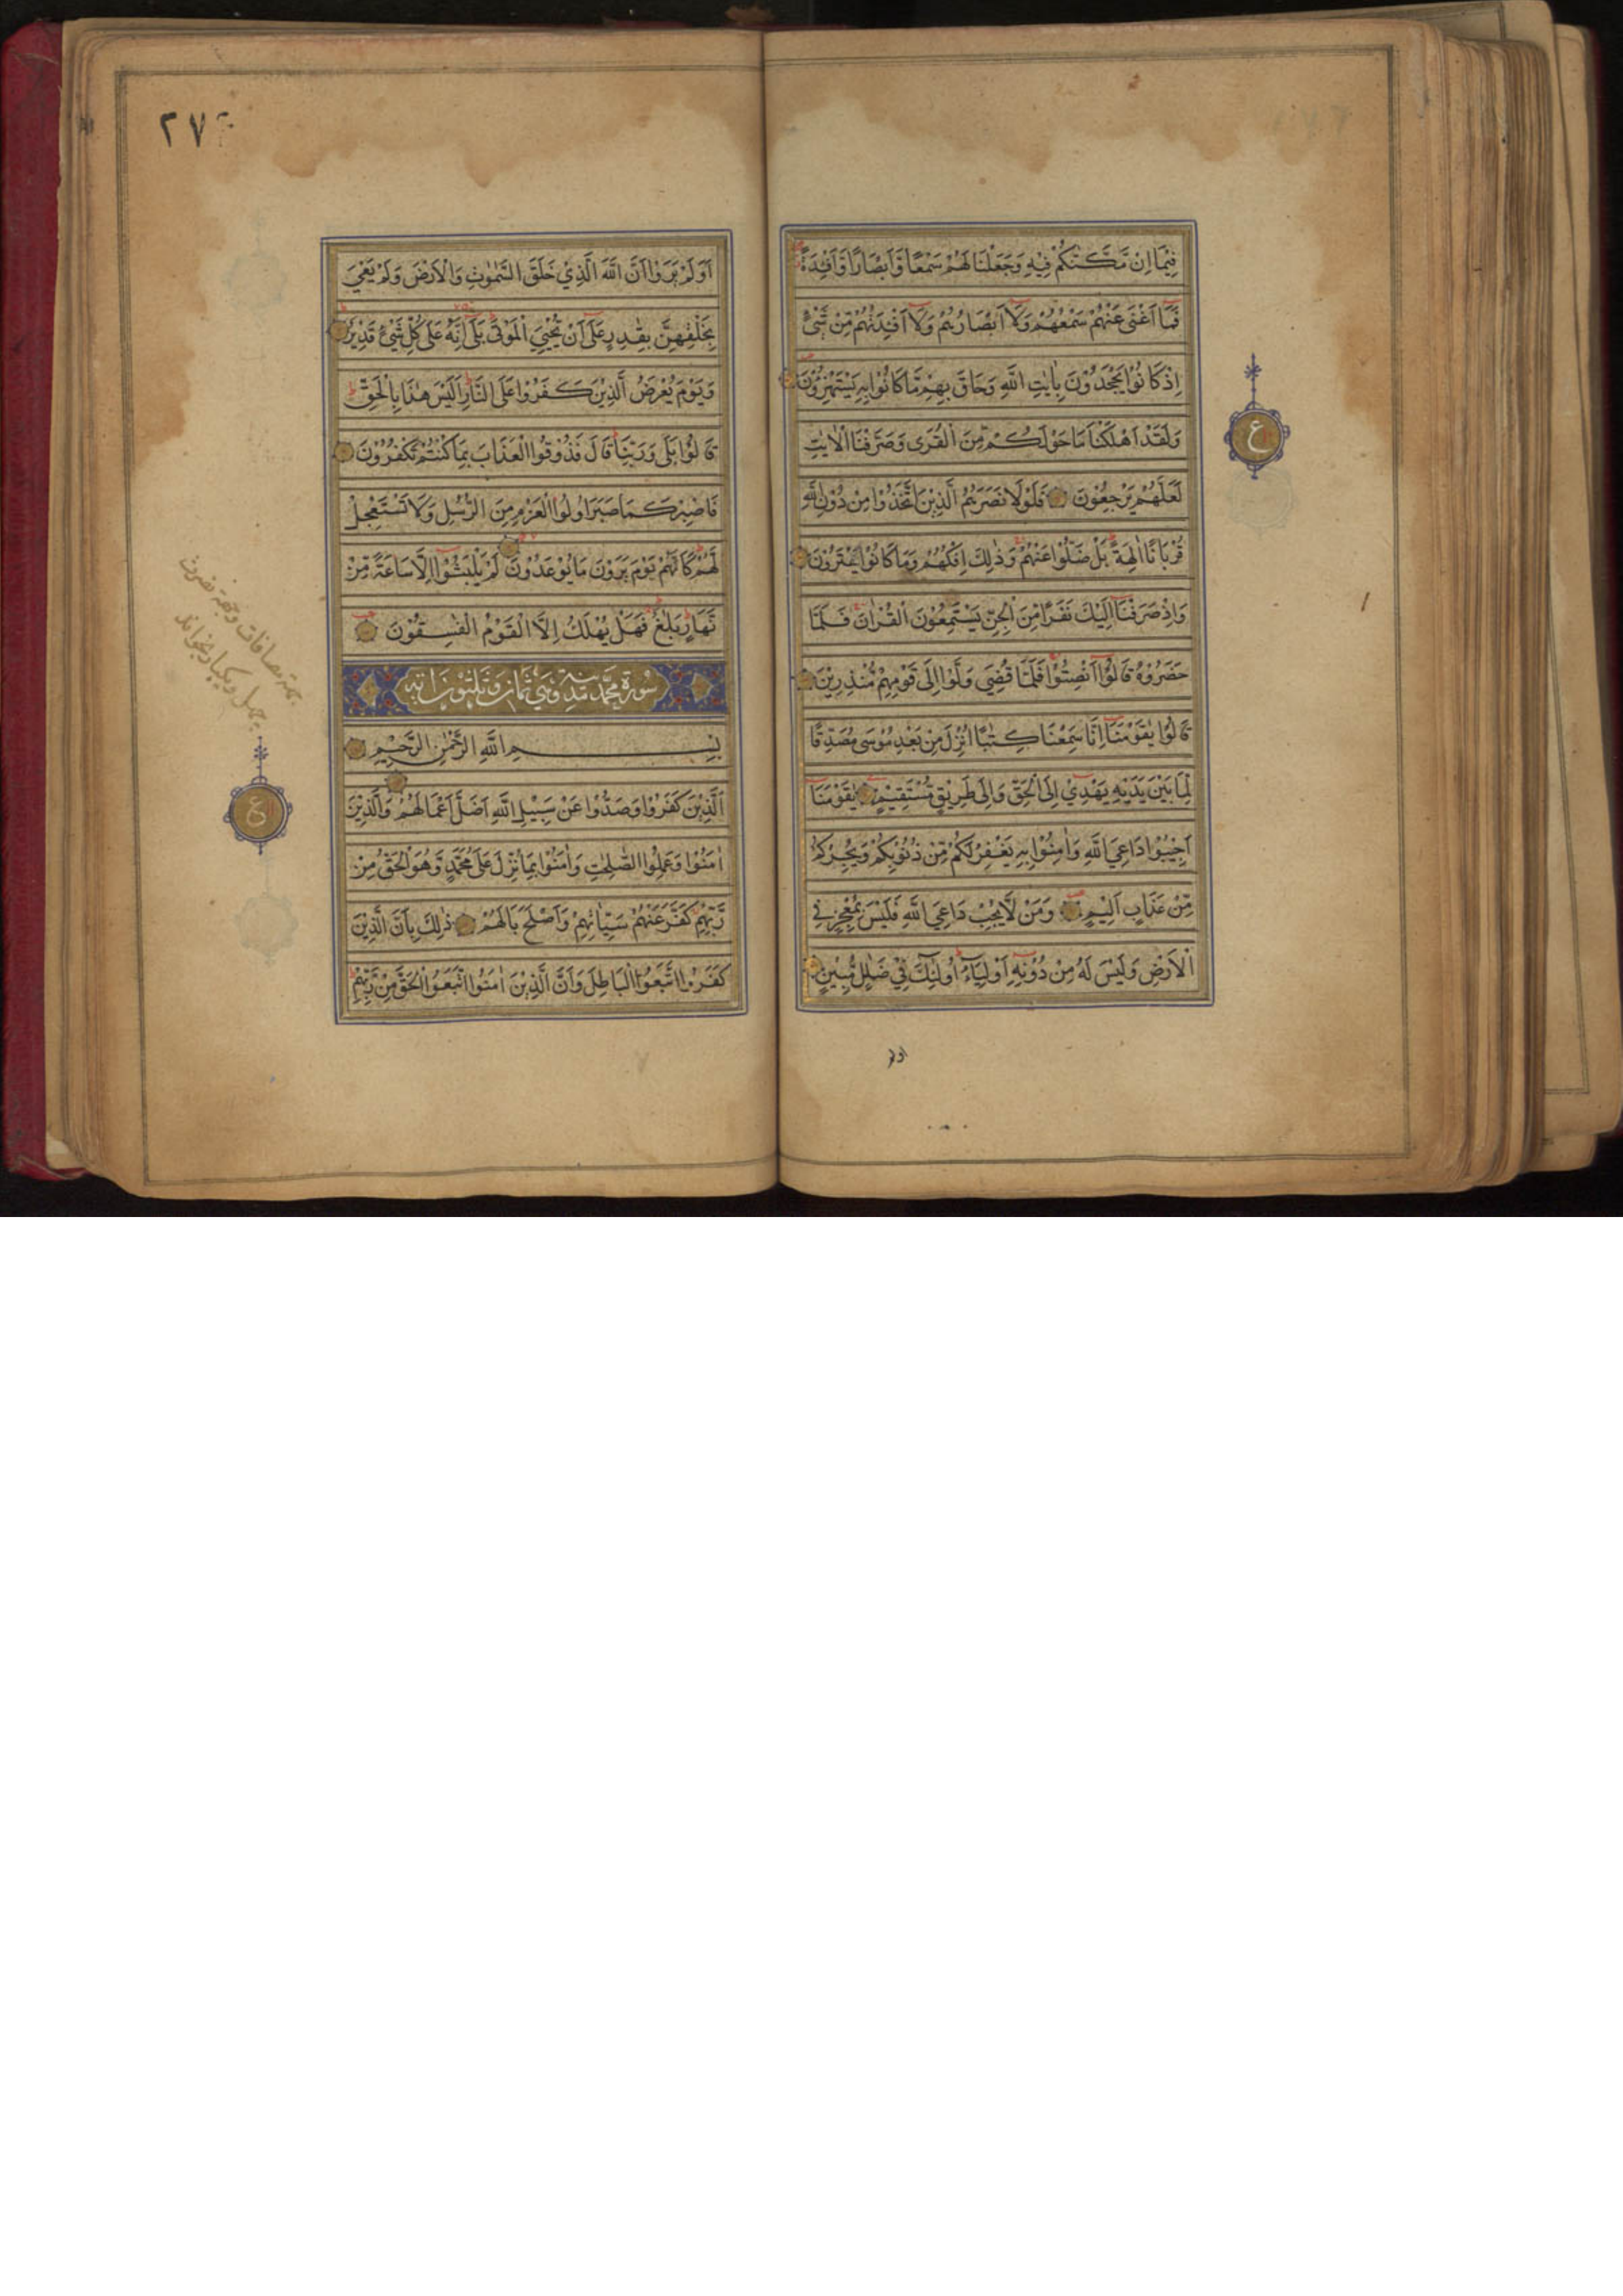 فِيْمَا اِنْ مَّكَّنّٰكُمْ فِيْهِ وَجَعَلْنَا لَهُمْ سَمْعًا وَّاَبْصَارًا وَّاَفْـِٕدَةً
فَمَا اَغْنٰى عَنْهُمْ سَمْعُهُمْ وَلَا اَبْصَارُهُمْ وَلَا اَفْـِٕدَتُهُمْ مِّنْ شَيْءٍ
اِذْ كَانُوْا يَجْحَدُوْنَ بِاٰيٰتِ اللّٰهِ وَحَاقَ بِهِمْ مَّا كَانُوْا بِهٖ يَسْتَهْزِءُوْنَ
وَلَقَدْ اَهْلَكْنَا مَا حَوْلَكُمْ مِّنَ الْقُرٰى وَصَرَّفْنَا الْاٰيٰتِ
لَعَلَّهُمْ يَرْجِعُوْنَ فَلَوْلَا نَصَرَهُمُ الَّذِيْنَ اتَّخَذُوْا مِنْ دُوْنِ اللّٰهِ
قُرْبَانًا اٰلِهَةً بَلْ ضَلُّوْا عَنْهُمْ وَذٰلِكَ اِفْكُهُمْ وَمَا كَانُوْا يَفْتَرُوْنَ
وَاِذْ صَرَفْنَا اِلَيْكَ نَفَرًا مِّنَ الْجِنِّ يَسْتَمِعُوْنَ الْقُرْاٰنَ فَلَمَّا
حَضَرُوْهُ قَالُوْا اَنْصِتُوْا فَلَمَّا قُضِيَ وَلَّوْا اِلٰى قَوْمِهِمْ مُّنْذِرِيْنَ
قَالُوْا يٰقَوْمَنَا اِنَّا سَمِعْنَا كِتٰبًا اُنْزِلَ مِنْ بَعْدِ مُوْسٰى مُصَدِّقًا
لِّمَا بَيْنَ يَدَيْهِ يَهْدِيْ اِلَى الْحَقِّ وَاِلٰى طَرِيْقٍ مُّسْتَقِيْمٍ يٰقَوْمَنَا
اَجِيْبُوْا دَاعِيَ اللّٰهِ وَاٰمِنُوْا بِهٖ يَغْفِرْ لَكُمْ مِّنْ ذُنُوْبِكُمْ وَيُجِرْكُمْ
مِّنْ عَذَابٍ اَلِيْمٍ وَمَنْ لَّا يُجِبْ دَاعِيَ اللّٰهِ فَلَيْسَ بِمُعْجِزٍ فِي
الْاَرْضِ وَلَيْسَ لَهٗ مِنْ دُوْنِهٖ اَوْلِيَاءُ اُولٰئِكَ فِيْ ضَلٰلٍ مُّبِيْنٍ
اولم
ع
اَوَلَمْ يَرَوْا اَنَّ اللّٰهَ الَّذِيْ خَلَقَ السَّمٰوٰتِ وَالْاَرْضَ وَلَمْ يَعْيَ
بِخَلْقِهِنَّ بِقٰدِرٍ عَلٰى اَنْ يُّحْيِيَ الْمَوْتٰى بَلٰى اِنَّهٗ عَلٰى كُلِّ شَيْءٍ قَدِيْرٌ
وَيَوْمَ يُعْرَضُ الَّذِيْنَ كَفَرُوْا عَلَى النَّارِ اَلَيْسَ هٰذَا بِالْحَقِّ
قَالُوْا بَلٰى وَرَبِّنَا قَالَ فَذُوْقُوا الْعَذَابَ بِمَا كُنْتُمْ تَكْفُرُوْنَ
فَاصْبِرْ كَمَا صَبَرَ اُولُوا الْعَزْمِ مِنَ الرُّسُلِ وَلَا تَسْتَعْجِلْ
لَّهُمْ كَاَنَّهُمْ يَوْمَ يَرَوْنَ مَا يُوْعَدُوْنَ لَمْ يَلْبَثُوْا اِلَّا سَاعَةً مِّنْ
نَّهَارٍ بَلٰغٌ فَهَلْ يُهْلَكُ اِلَّا الْقَوْمُ الْفٰسِقُوْنَ
سورة محمد مدنية وهي ثمان وثلثون اية
بِسْمِ اللّٰهِ الرَّحْمٰنِ الرَّحِيْمِ
اَلَّذِيْنَ كَفَرُوْا وَصَدُّوْا عَنْ سَبِيْلِ اللّٰهِ اَضَلَّ اَعْمَالَهُمْ وَالَّذِيْنَ
اٰمَنُوْا وَعَمِلُوا الصّٰلِحٰتِ وَاٰمَنُوْا بِمَا نُزِّلَ عَلٰى مُحَمَّدٍ وَّهُوَ الْحَقُّ مِنْ
رَّبِّهِمْ كَفَّرَ عَنْهُمْ سَيِّاٰتِهِمْ وَاَصْلَحَ بَالَهُمْ ذٰلِكَ بِاَنَّ الَّذِيْنَ
كَفَرُوا اتَّبَعُوا الْبَاطِلَ وَاَنَّ الَّذِيْنَ اٰمَنُوا اتَّبَعُوا الْحَقَّ مِنْ رَّبِّهِمْ
ع